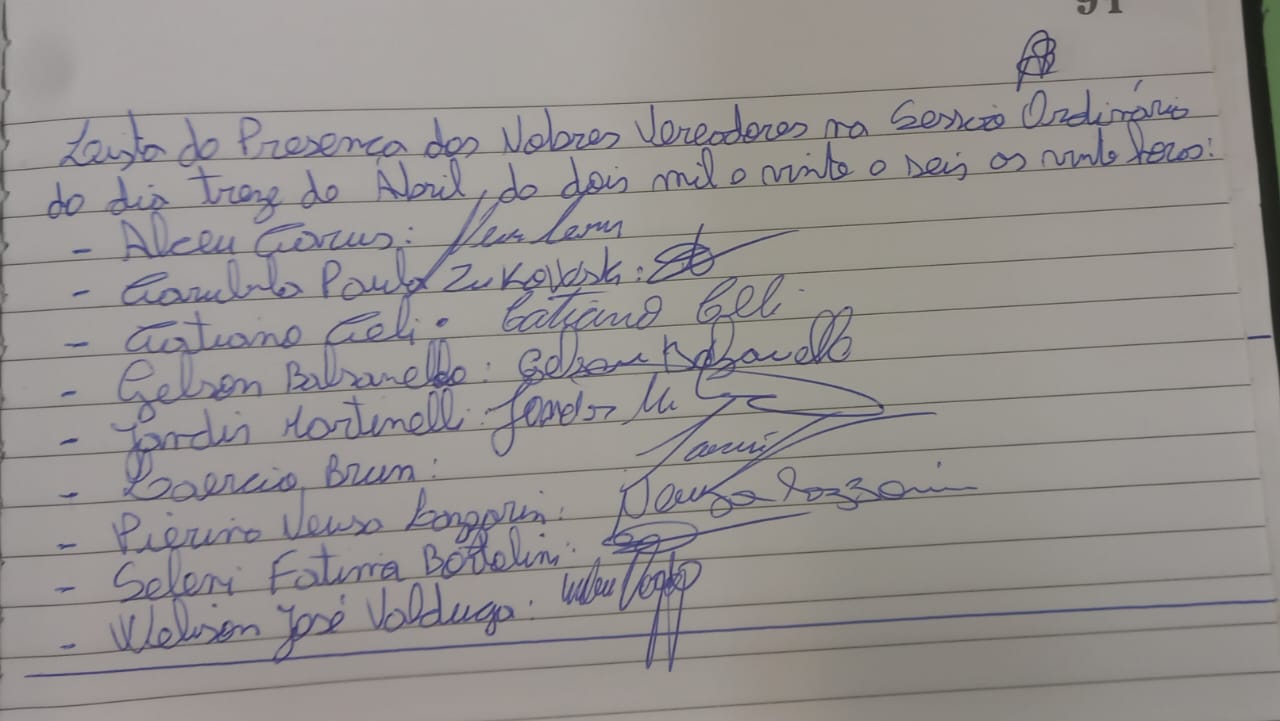 91
Lista de Presença dos Nobres Vereadores na Sessão Ordinária
do dia treze de Abril, de dois mil e vinte e seis as vinte horas:
- Alceu
- Paula Zukovski:
- Catiano Celi: Catiano Celi
- Gelson Balzanello: Gelson Balzanello
- Jandir Martinelli:
- Laercio Brun:
- Pierina Neusa
- Seleni Fatima Bottolini:
- Welison José Valduga: